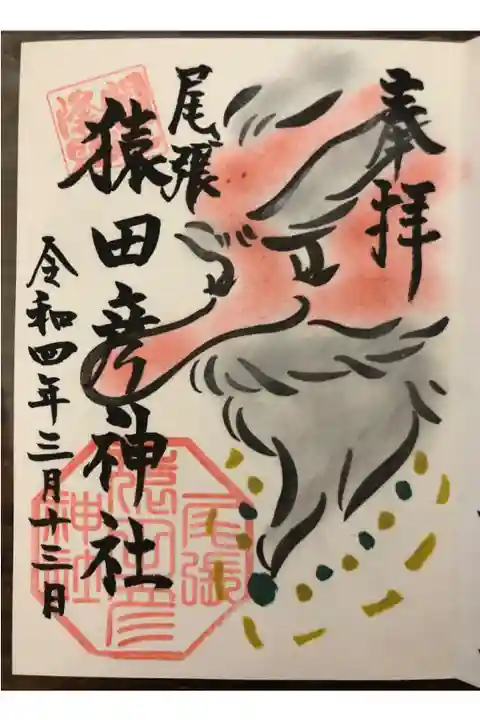 奉拝
尾張
猿田彦神社
令和四年三月十三日
尾張
猿田彦
神社